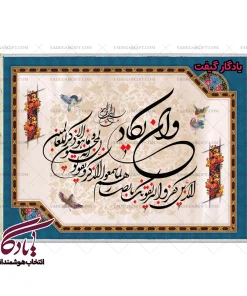 یادگار گیفت
وان یکاد
الذین کفروا لیزلقونک بابصارهم لما سمعوا الذکر و یقولون
انه لمجنون و ما هو الا ذکر للعالمین
یادگار
انتخاب هوشمندانه